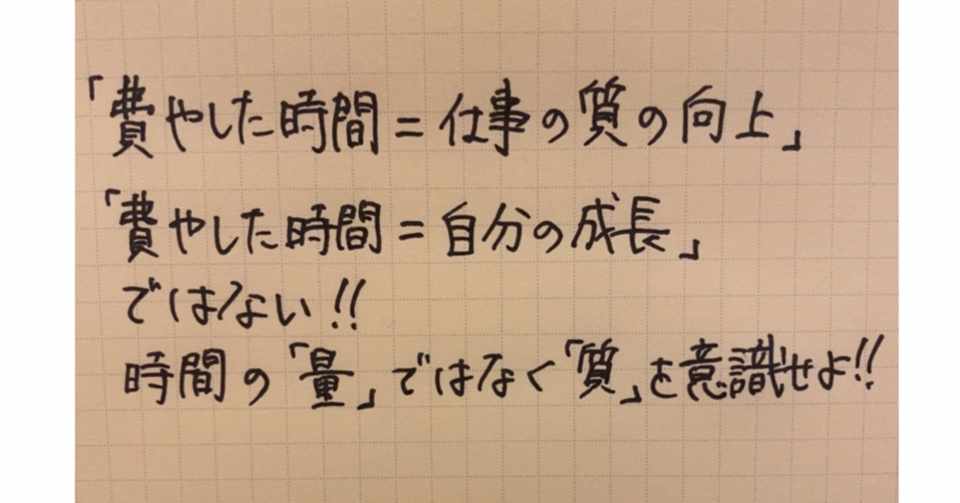 「費やした時間=仕事の質の向上」
「費やした時間=自分の成長」
ではない!!
時間の「量」ではなく「質」を意識せよ!!